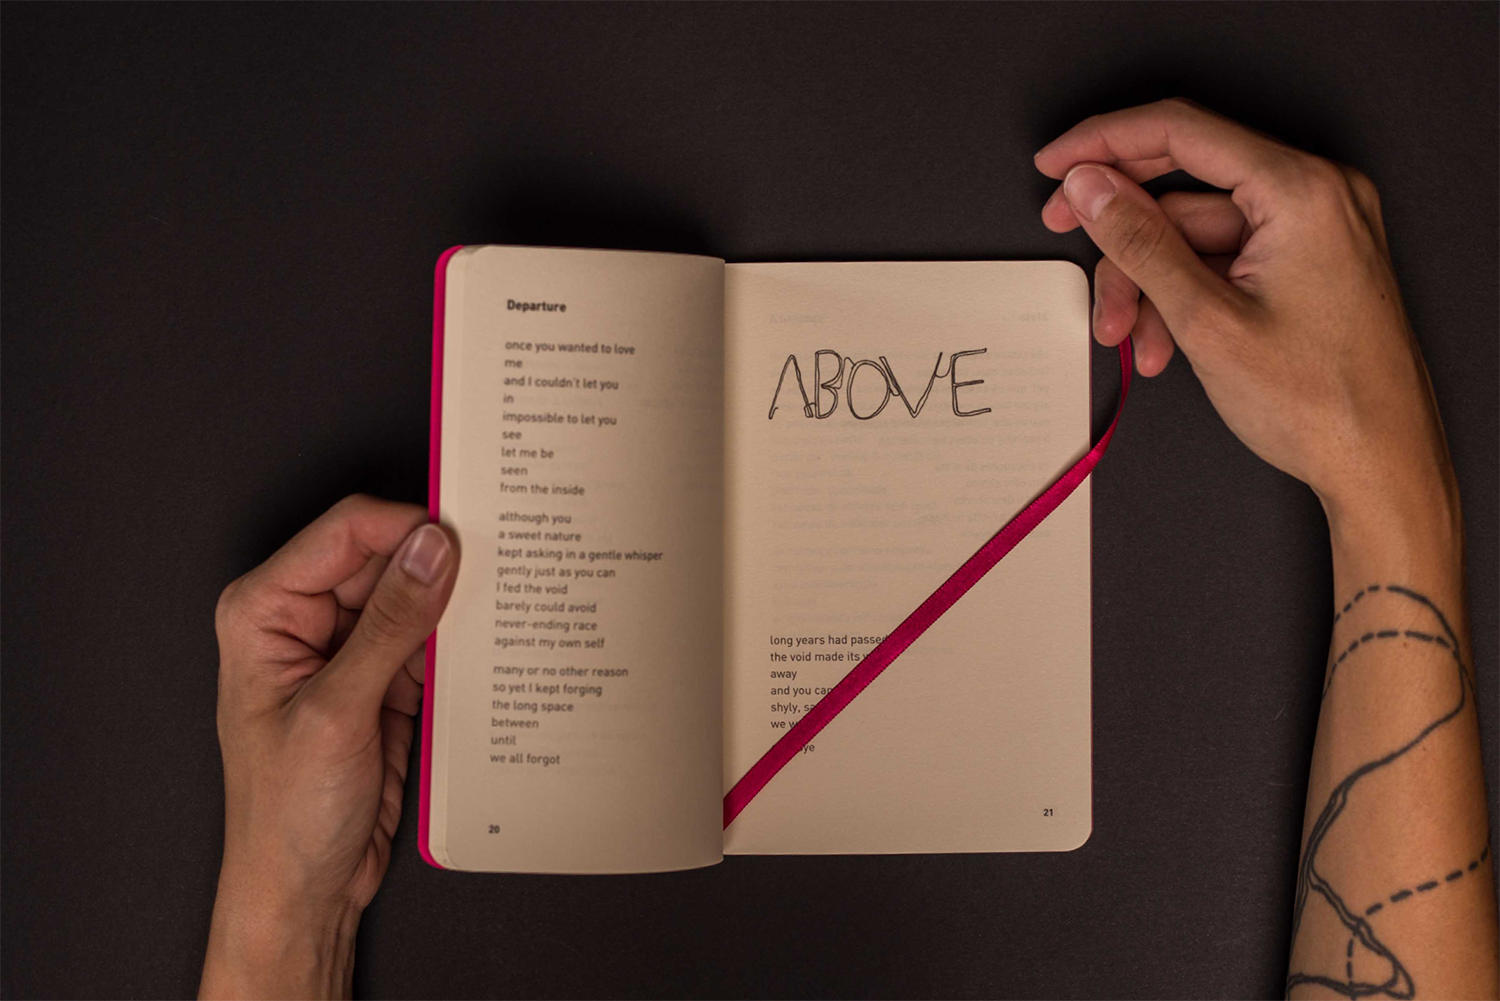 Departure
once you wanted to love
me
and I couldn't let you
in
impossible to let you
see
let me be
seen
from the inside
although you
a sweet nature
kept asking in a gentle whisper
gently just as you can
I fed the void
barely could avoid
never-ending race
against my own self
many or no other reason
so yet I kept forging
the long space
between
until
we all forgot
20
ABOVE
long years had passed
the void made its
away
and you
shyly,
we
21